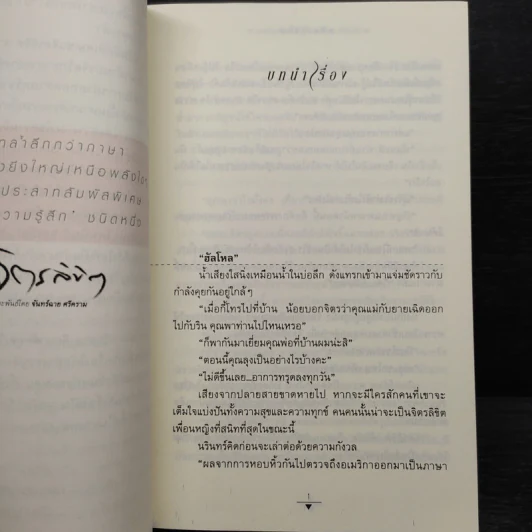 ลึกกว่าภาษา
ยิ่งใหญ่เหนือพลังใจ
ประสาทสัมผัสพิเศษ
ความรู้สึก’ ชนิดหนึ่ง
จิตรลิขิต
จันทร์ฉาย ศรีคราม
บทนำเรื่อง
“ฮัลโหล”
น้ำเสียงใสนิ่งเหมือนน้ำในบ่อลึก ดังแทรกเข้ามาแจ่มชัดราวกับ
กำลังคุยกันอยู่ใกล้ๆ
“เมื่อกี้โทรไปที่บ้าน น้อยบอกจิตรว่าคุณแม่กับยายเฉิดออก
ไปกับริน คุณพาท่านไปไหนเหรอ”
“ก็พากันมาเยี่ยมคุณพ่อที่บ้านผมน่ะสิ”
“ตอนนี้คุณลุงเป็นอย่างไรบ้างคะ”
“ไม่ดีขึ้นเลย...อาการทรุดลงทุกวัน”
เสียงจากปลายสายขาดหายไป หากจะมีใครสักคนที่เขาจะ
เต็มใจแบ่งปันทั้งความสุขและความทุกข์ คนคนนั้นน่าจะเป็นจิตรลิขิต
เพื่อนหญิงที่สนิทที่สุดในขณะนี้
นรินทร์คิดก่อนจะเล่าต่อด้วยความกังวล
“ผลจากการหอบหิ้วกันไปตรวจถึงอเมริกาออกมาเป็นภาษา
1